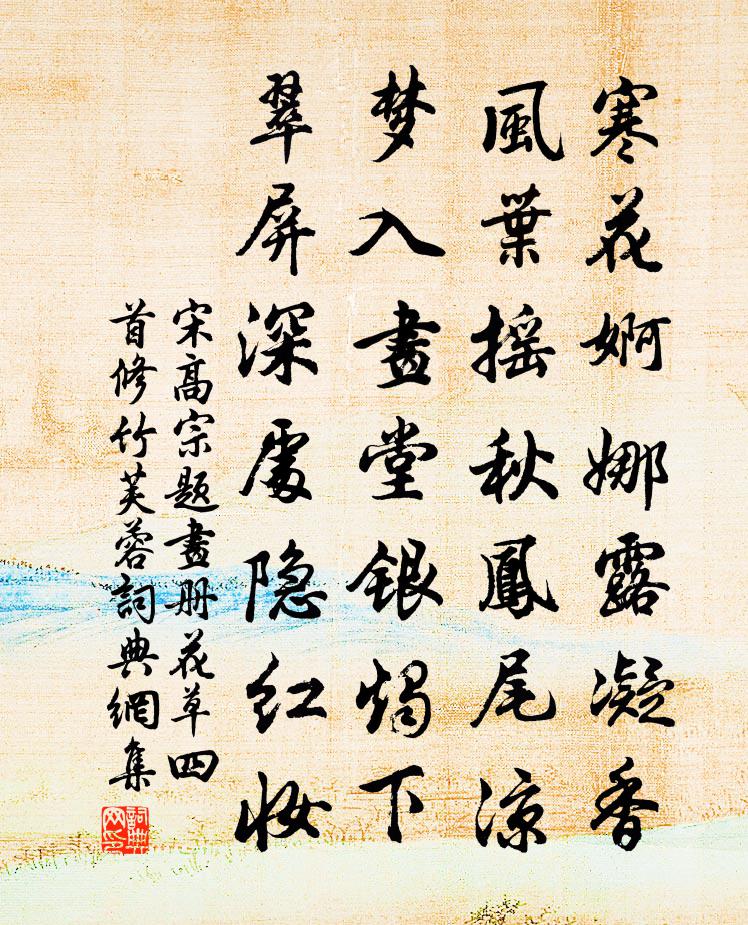 寒花婀娜露凝香
風葉摇秋鳳尾凉
梦入畫堂銀燭下
翠屏深處隐红妆
宋高宗题畫册花草四
首修竹芙蓉詞典網集
詞典网印